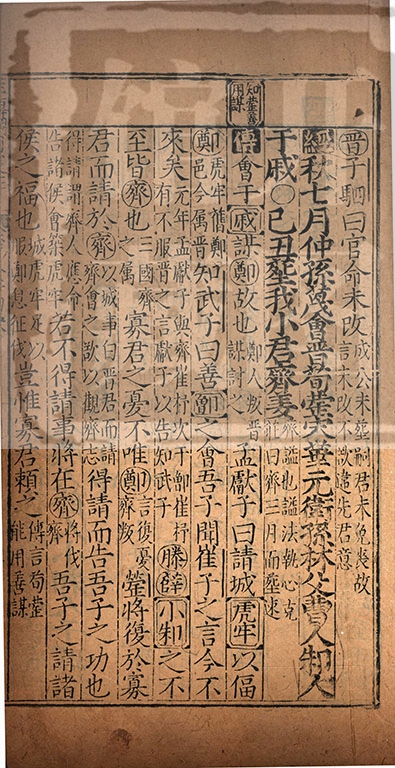 晉子駟曰官命未改成公未葬嗣君未免喪故言未改不欲違先君意
經秋七月仲孫蔑會晉荀罃宋華元衛孫林父曹人邾人
于戚○己丑葬我小君齊姜齊謚也謚法執心克莊曰齊三月而葬速
知罃善用謀
傳會于戚謀鄭故也鄭人叛晉謀討之孟獻子曰請城虎牢以偪
鄭虎牢舊鄭邑今屬晉知武子曰善鄫之會吾子聞崔子之言今不
來矣元年孟獻子與齊崔杼次于鄫崔杼有不服晉之言獻子以告知武子滕薛小邾之不
至皆齊也三國齊之屬寡君之憂不唯鄭言復憂齊叛罃將復於寡
君而請於齊以城事白晉君而請齊會之欲以觀齊志得請而告吾子之功也
得請謂齊人應命告諸侯會築虎牢若不得請事將在齊將伐齊吾子之請諸
侯之福也城虎牢足以服鄭息征伐豈惟寡君賴之傳言荀罃能用善謀